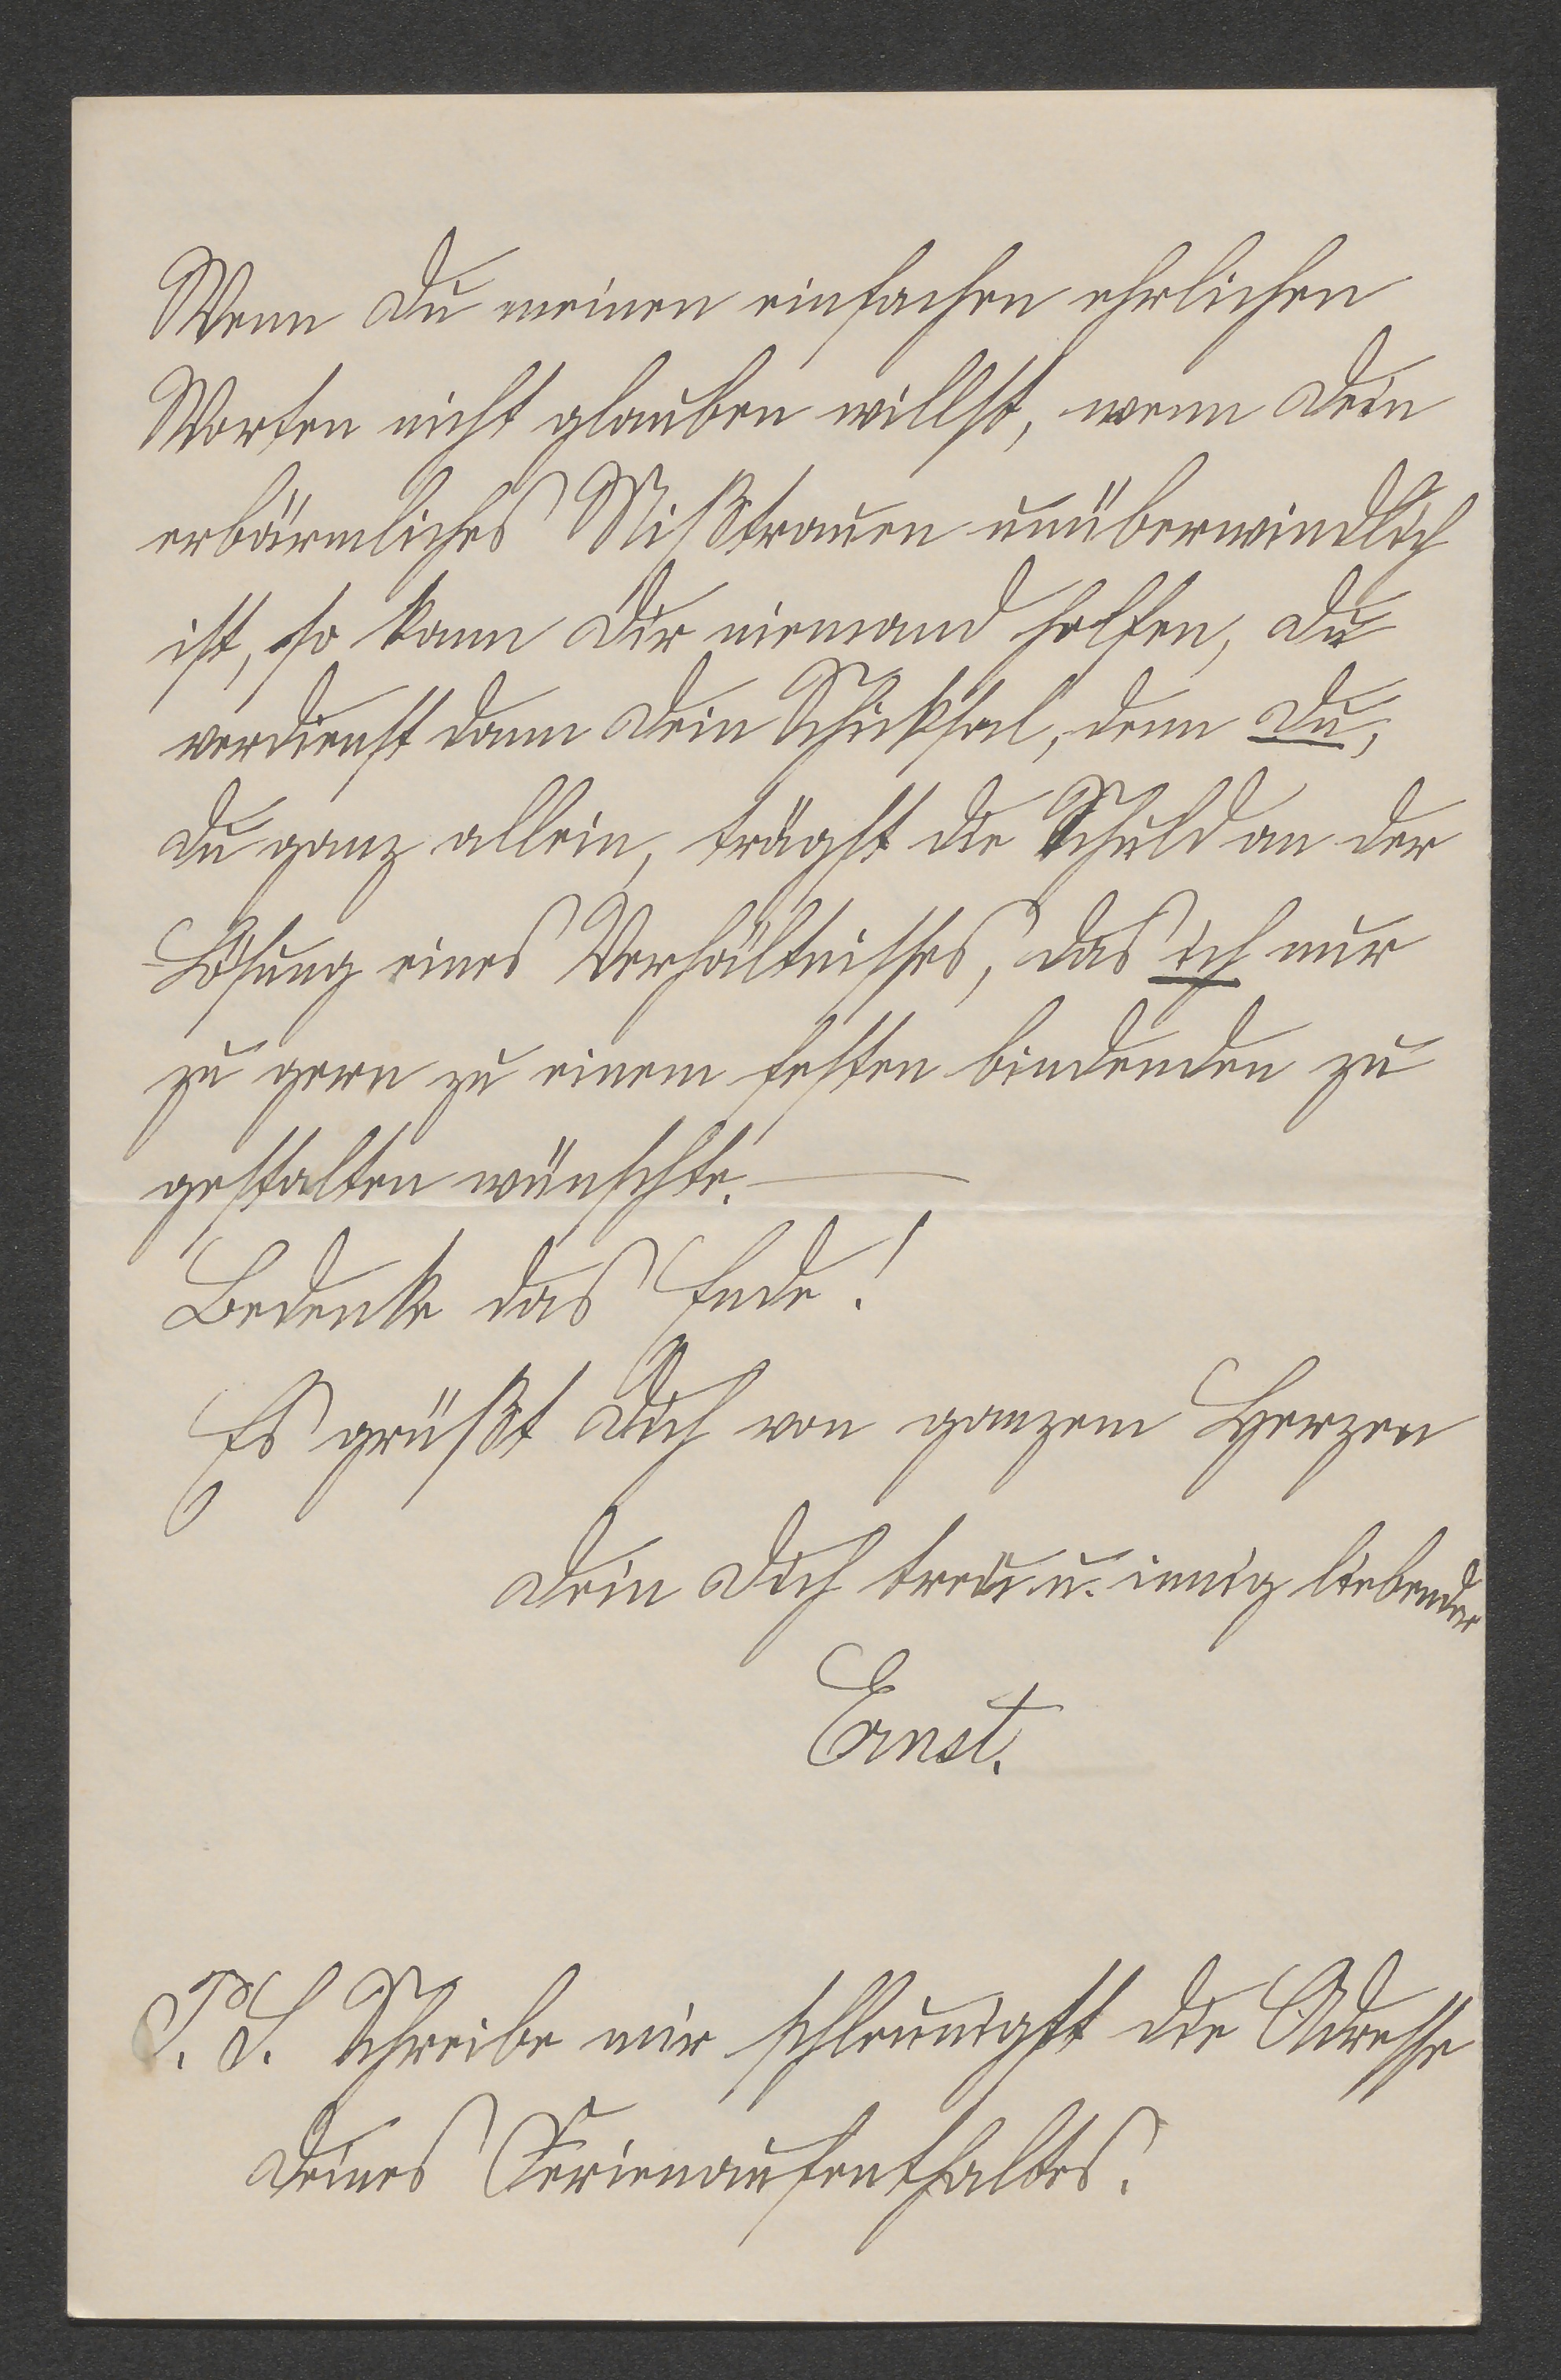 Wenn Du meinen einfachen ehrlichen
Worten nicht glauben willst, wenn Dein
erbärmliches Mißtrauen unüberwindlich
ist, so kann Dir niemand helfen, Du
verdienst dann Dein Schicksal, denn Du,
Du ganz allein, trägst die Schuld an der
Lösung eines Verhältnisses, das ich nur
zu gern zu einem festen bindenden zu
gestalten wünschte. —
Bedenke das Ende!
Es grüßt Dich von ganzem Herzen
Dein Dich treu u. innig liebender
Ernst.
P. S. Schreibe mir schleunigst die Adresse
Deines Ferienaufenthaltes.